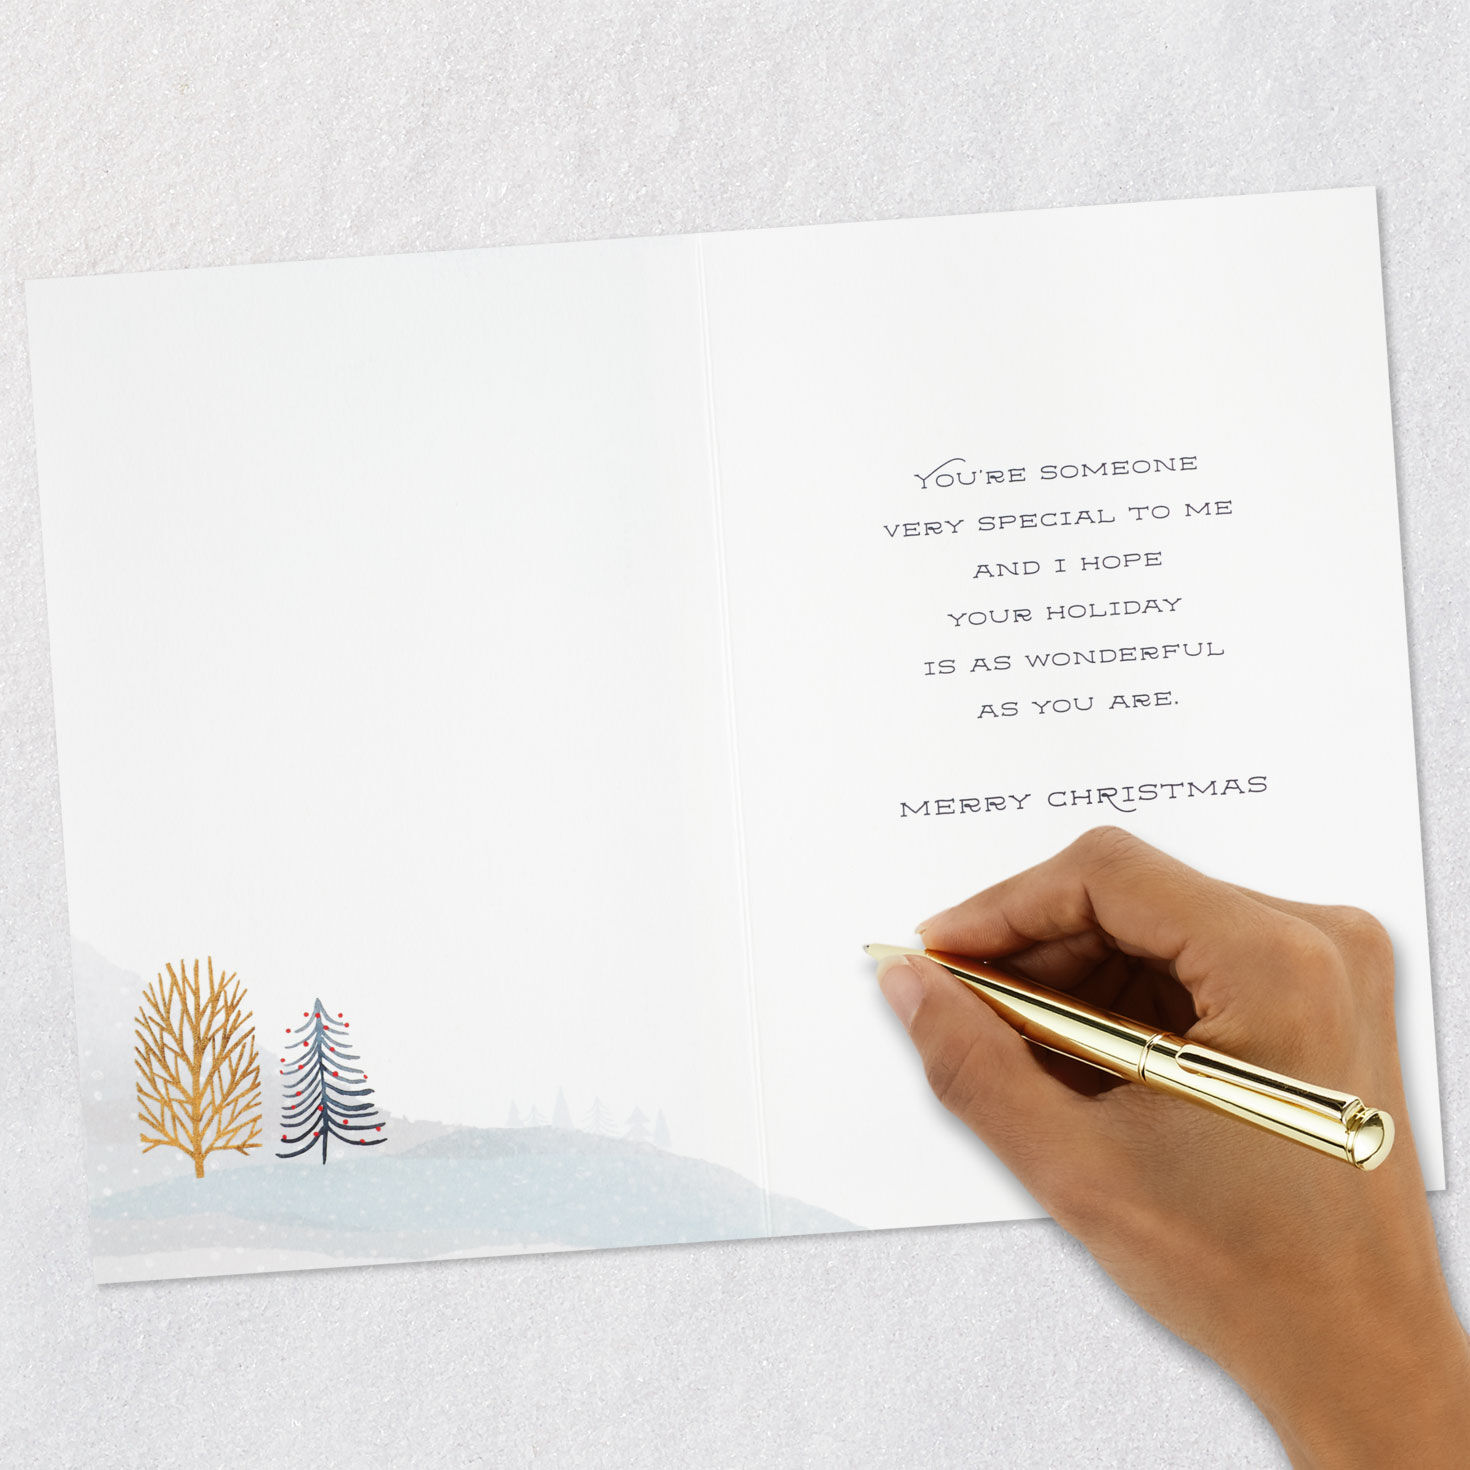 YOU'RE SOMEONE
VERY SPECIAL TO ME
AND I HOPE
YOUR HOLIDAY
IS AS WONDERFUL
AS YOU ARE.
MERRY CHRISTMAS